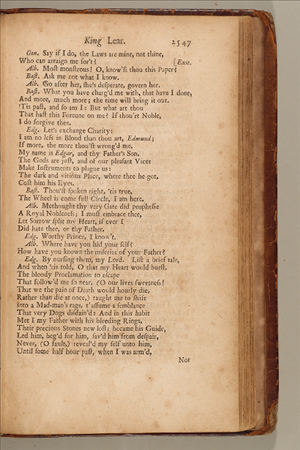 King Lear. 2547
Gon. Say if I do, the Laws are mine, not thine,
Who can arraign me for't? [Exit.
Alb. Most monstrous! O, know'st thou this Paper?
Bast. Ask me not what I know.
Alb. Go after her, she's desperate, govern her.
Bast. What you have charg'd me with, that have I done,
And more, much more; the time will bring it out.
'Tis past, and so am I: But what art thou
That hast this Fortune on me? If thou'rt Noble,
I do forgive thee.
Edg. Let's exchange Charity:
I am no less in Blood than thou art, Edmund;
If more, the more thou'st wrong'd me.
My name is Edgar, and thy Father's Son.
The Gods are just, and of our pleasant Vices
Make Instruments to plague us:
The dark and vitious Place, where thee he got,
Cost him his Eyes.
Bast. Thou'st spoken right, 'tis true,
The Wheel is come full Circle, I am here.
Alb. Methought thy very Gate did prophesie
A Royal Nobleness; I must embrace thee,
Let Sorrow split my Heart, if ever I
Did hate thee, or thy Father.
Edg. Worthy Prince, I know't.
Alb. Where have you hid your self?
How have you known the miseries of your Father?
Edg. By nursing them, my Lord. List a brief tale,
And when 'tis told, O that my Heart would burst.
The bloody Proclamation to escape
That follow'd me so near, (O our lives sweetness!
That we the pain of Death would hourly die,
Rather than die at once,) taught me to shift
Into a Mad-man's rags, t'assume a semblance
That very Dogs disdain'd: And in this habit
Met I my Father with his bleeding Rings,
Their precious Stones new lost; became his Guide,
Led him, beg'd for him, sav'd him from despair,
Never, (O fault,) reveal'd my self unto him,
Until some half hour past, when I was arm'd,
Not